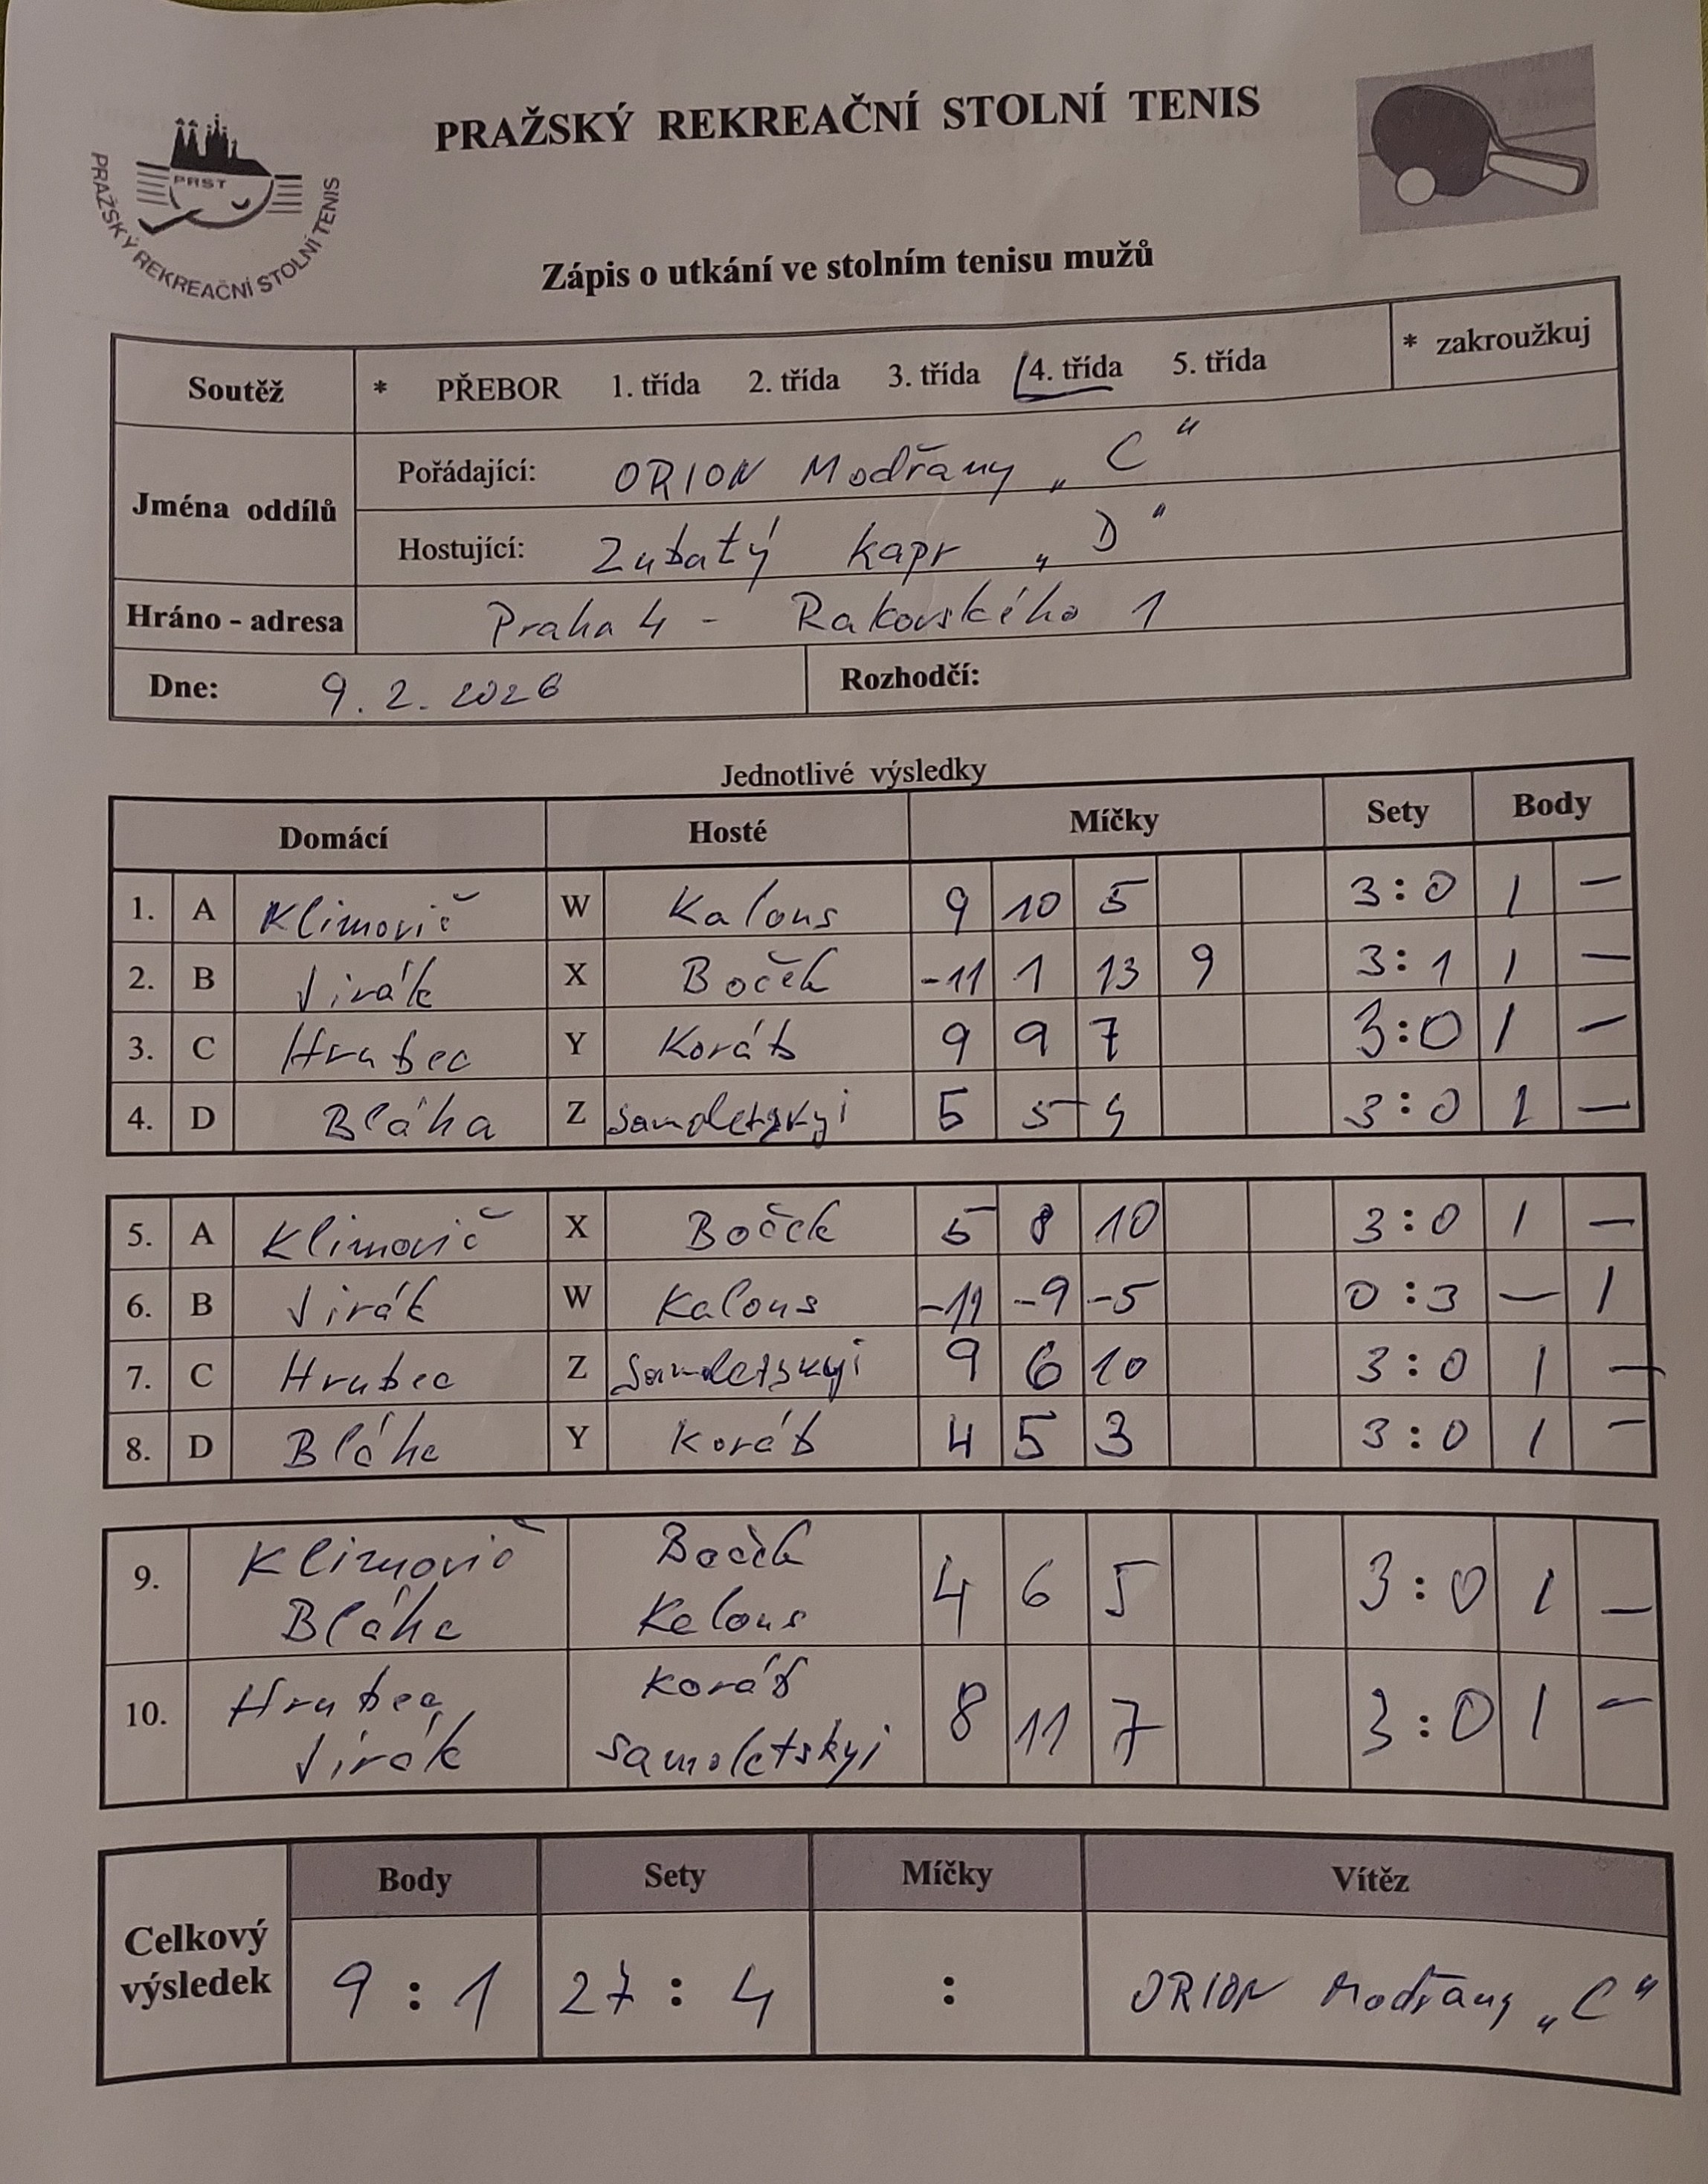 PRAŽSKÝ REKREAČNÍ STOLNÍ TENIS
PRST
PRAŽSKÝ REKREAČNÍ STOLNÍ TENIS
Zápis o utkání ve stolním tenisu mužů
Soutěž * PŘEBOR 1. třída 2. třída 3. třída 4. třída 5. třída * zakroužkuj
Jména oddílů
Pořádající: ORION Modřany „C“
Hostující: Zubatý kapr „D“
Hráno - adresa Praha 4 - Rakovského 1
Dne: 9. 2. 2026 Rozhodčí:
Jednotlivé výsledky
Domácí Hosté Míčky Sety Body
1. A Klimovič W Kalous 9 10 5 3:0 1 –
2. B Jirák X Boček -11 1 13 9 3:1 1 –
3. C Hrubec Y Koráb 9 9 7 3:0 1 –
4. D Bláha Z Samoletskyi 5 5 9 3:0 1 –
5. A Klimovič X Boček 5 8 10 3:0 1 –
6. B Jirák W Kalous -11 -9 -5 0:3 – 1
7. C Hrubec Z Samoletskyi 9 6 10 3:0 1 –
8. D Bláha Y Koráb 4 5 3 3:0 1 –
9. Klimovič Boček 4 6 5 3:0 1 –
Bláha Kalous
10. Hrubec Koráb 8 11 7 3:0 1 –
Jirák Samoletskyi
Celkový výsledek
Body Sety Míčky Vítěz
9 : 1 27 : 4 : ORION Modřany „C“